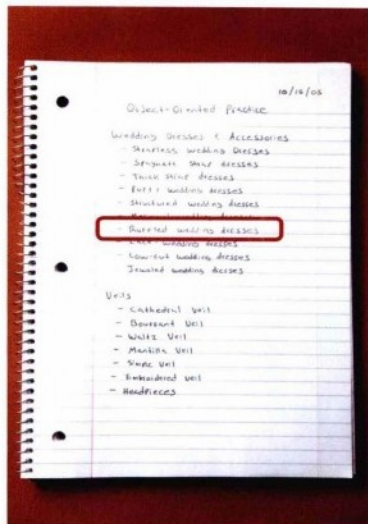 10/15/03
Object-Oriented Practice
Wedding Dresses & Accessories
- Strapless Wedding Dresses
- Spaghetti Strap dresses
- Thick Strap dresses
- Puffy wedding dresses
- Structured wedding dresses
wedding dresses
- Ruffled wedding dresses
- wedding dresses
- Low-cut wedding dresses
- Jeweled wedding dresses
Veils
- Cathedral Veil
- Veil
- Waltz Veil
- Mantilla Veil
- Simple Veil
- Embroidered Veil
- Headpieces